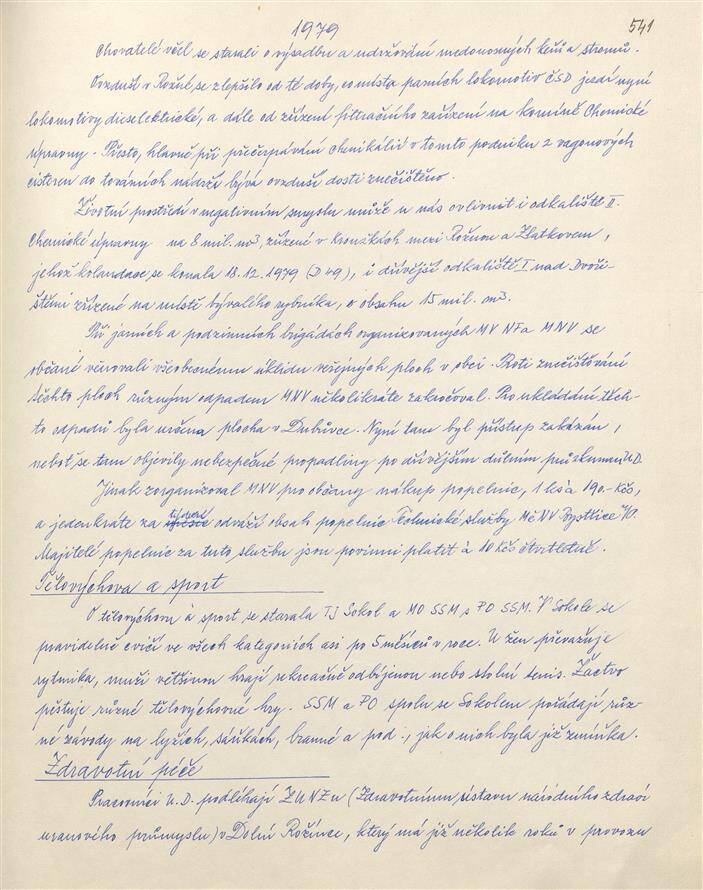 1979
541
Chovatelé včel se starali o výsadbu a udržování medonosných keřů a stromů.
Ovzduší v Rožné se zlepšilo od té doby, co místo parních lokomotiv ČSD jezdí nyní
lokomotivy dieselektrické, a dále od zřízení filtračního zařízení na komíně Chemické
úpravny. Přesto, hlavně při přečerpávání chemikálií v tomto podniku z vagonových
cisteren do továrních nádrží bývá ovzduší dosti znečištěno.
Životní prostředí v negativním smyslu může u nás ovlivnit i odkaliště II.
Chemické úpravny na 8 mil. m³, zřízené v Kroužkách mezi Rožnou a Zlatkovem,
jehož kolaudace se konala 18.12.1979 (D 49), i dřívější odkaliště I nad Dvoři-
štěmi zřízené na místě bývalého rybníka, o obsahu 15 mil. m³.
Při jarních a podzimních brigádách organizovaných MV NF a MNV se
občané věnovali všeobecnému úklidu veřejných ploch v obci. Proti znečišťování
těchto ploch různým odpadem MNV několikráte zakročoval. Pro ukládání těch-
to odpadů byla určena plocha v Dubůvce. Nyní tam byl přístup zakázán,
neboť se tam objevily nebezpečné propadliny po dřívějším důlním průzkumu U.D.
Jinak zorganizoval MNV pro občany nákup popelnic, 1 ks à 190.- Kčs,
a jedenkráte za týden odváží obsah popelnic Technické služby MěNV Bystřice n/P.
Majitelé popelnic za tuto službu jsou povinni platit à 10 Kčs čtvrtletně.
Tělovýchova a sport
O tělovýchovu a sport se starala TJ Sokol a MO SSM s PO SSM. V Sokole se
pravidelně cvičí ve všech kategoriích asi po 5 měsíců v roce. U žen převažuje
rytmika, muži většinou hrají rekreačně odbíjenou nebo stolní tenis. Žactvo
pěstuje různé tělovýchovné hry. SSM a PO spolu se Sokolem pořádají růz-
né závody na lyžích, sáňkách, branné a pod., jak o nich byla již zmíňka.
Zdravotní péče
Pracovníci U.D. podléhají ZUNZu (Zdravotnímu ústavu národního zdraví
uranového průmyslu) v Dolní Rožínce, který má již několik roků v provozu